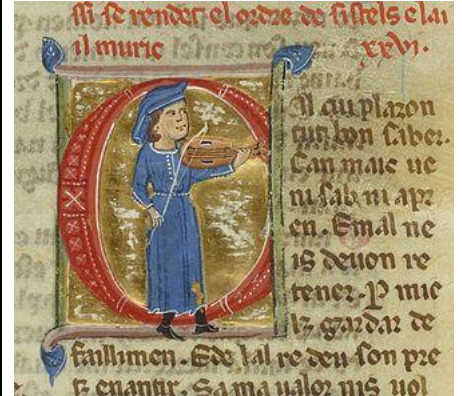 si se rendet el ordre. de sistels e lai
il muric xxvi.
cui plazon
tut bon saber.
Can maic ue
ni sab ni apr
en. E mal ne
is deuon re
tener. P mie
lz gardar de
faillimen. E de lal re deu son pre
tz enantir. Sa ma ualor nis uol